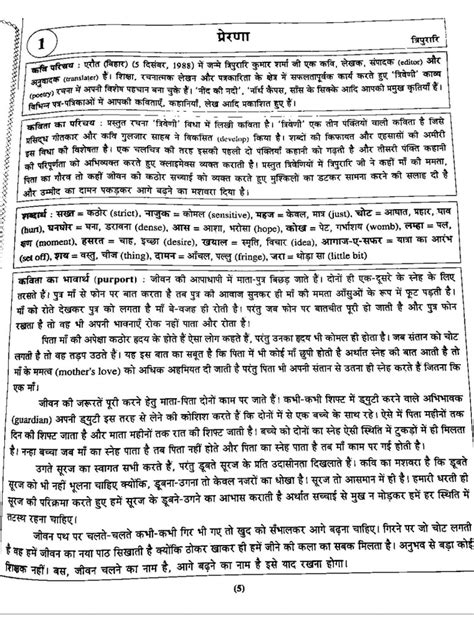 1
प्रेरणा
त्रिपुरारि
कवि परिचय : एरौत (बिहार) (5 दिसंबर, 1988) में जन्मे त्रिपुरारि कुमार शर्मा जी एक कवि, लेखक, संपादक (editor) और
अनुवादक (translater) हैं। शिक्षा, रचनात्मक लेखन और पत्रकारिता के क्षेत्र में सफलतापूर्वक कार्य करते हुए 'त्रिवेणी' काव्य
(poetry) रचना में अपनी विशेष पहचान बना चुके हैं। 'नींद की नदी', 'नॉर्थ कैंपस, साँस के सिक्के आदि आपकी प्रमुख कृतियाँ हैं।
विभिन्न पत्र-पत्रिकाओं में आपकी कविताएँ, कहानियाँ, लेख आदि प्रकाशित हुए हैं।
कविता का परिचय : प्रस्तुत रचना 'त्रिवेणी' विधा में लिखी कविता है। 'त्रिवेणी' एक तीन पंक्तियों वाली कविता है जिसे
प्रसिद्ध गीतकार और कवि गुलजार साहब ने विकसित (develop) किया है। शब्दों की किफायत और एहसासों की अमीरी
इस विधा की विशेषता है। एक चलचित्र की तरह इसकी पहली दो पंक्तियाँ कहानी को गढ़ती है और तीसरी पंक्ति कहानी
की परिपूर्णता को अभिव्यक्त करते हुए क्लाइमेक्स व्यक्त कराती है। प्रस्तुत त्रिवेणियों में त्रिपुरारि जी ने कहीं माँ की ममता,
पिता का गौरव तो कहीं जीवन को कठोर सच्चाई को व्यक्त करते हुए मुश्किलों का डटकर सामना करने की सलाह दी है
और उम्मीद का दामन पकड़कर आगे बढ़ने का मशवरा दिया है।
शब्दार्थ : सख्त = कठोर (strict), नाजुक = कोमल (sensitive), महज = केवल, मात्र (just), चोट = आघात, प्रहार, घाव
(hurt), घनघोर = घना, डरावना (dense), आस = आशा, भरोसा (hope), कोख = पेट, गर्भाशय (womb), लम्हा = पल,
क्षण (moment), हसरत = चाह, इच्छा (desire), खयाल = स्मृति, विचार (idea), आगाज-ए-सफर = यात्रा का आरंभ
(set off), शय = वस्तु, चीज (thing), दामन = आँचल, पल्लु (fringe), जरा = थोड़ा सा (little bit)
कविता का भावार्थ (purport) : जीवन की आपाधापी में माता-पुत्र बिछड़ जाते हैं। दोनों ही एक-दूसरे के स्नेह के लिए
तरसते हैं। पुत्र माँ से फोन पर बात करता है तब पुत्र की आवाज सुनकर ही माँ की ममता आँसुओं के रूप में फूट पड़ती है।
माँ को रोते देखकर पुत्र को लगता है माँ बे-वजह ही रोती है। परंतु जब फोन पर बातचीत पूरी हो जाती है और पुत्र फोन
रखता है तो वह भी अपनी भावनाएँ रोक नहीं पाता और रोता है।
पिता माँ की अपेक्षा कठोर हृदय के होते हैं ऐसा लोग कहते हैं, परंतु उनका हृदय भी कोमल ही होता है। जब संतान को चोट
लगती है तो वह तड़प उठते हैं। यह इस बात का सबूत है कि पिता में भी कोई माँ छुपी होती है अर्थात स्नेह की बात आती है तो
माँ के ममत्व (mother's love) को अधिक अहमियत दी जाती है परंतु पिता भी अपनी संतान से उतना ही स्नेह करते हैं जितना कि
एक माँ।
जीवन की जरूरतें पूरी करने हेतु माता-पिता दोनों काम पर जाते हैं। कभी-कभी शिफ्ट में ड्यूटी करने वाले अभिभावक
(guardian) अपनी ड्यूटी इस तरह से लेने की कोशिश करते हैं कि दोनों में से एक बच्चे के साथ रहे। ऐसे में पिता महीनों तक
दिन की शिफ्ट जाता है और माता महीनों तक रात की शिफ्ट जाती है। बच्चे को दोनों का स्नेह ऐसी स्थिति में टुकड़ों में ही मिलता
है। नन्हा बच्चा जब माँ का स्नेह पाता है तब पिता नहीं होते और पिता का स्नेह पाता है तब माँ काम पर गई होती है।
उगते सूरज का स्वागत सभी करते हैं, परंतु डूबते सूरज के प्रति उदासीनता दिखलाते हैं। कवि का मशवरा है कि डूबते
सूरज को भी नहीं भूलना चाहिए क्योंकि, डूबना-उगना तो केवल नजरों का धोखा है। सूरज तो आसमान में ही है। हमारी धरती ही
सूरज की परिक्रमा करते हुए हमें सूरज के डूबने-उगने का आभास कराती है अर्थात सच्चाई से मुख न मोड़कर हमें हर स्थिति में
तटस्थ रहना चाहिए।
जीवन पथ पर चलते-चलते कभी-कभी गिर भी गए तो खुद को सँभालकर आगे बढ़ना चाहिए। गिरने पर जो चोट लगती
है वह हमें जीवन का नया पाठ सिखाती है क्योंकि ठोकर खाकर ही हमें जीने की कला का सबक मिलता है। अनुभव से बड़ा कोई
शिक्षक नहीं। बस, जीवन चलने का नाम है, आगे बढ़ने का नाम है इसे याद रखना होगा।
(5)